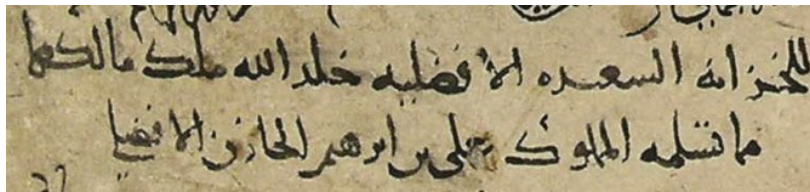 للخزانه السعيده الافضليه خلد الله ملك مالكها
مما تسلمه المملوك علي بن ابرهيم الخازن الافضلي